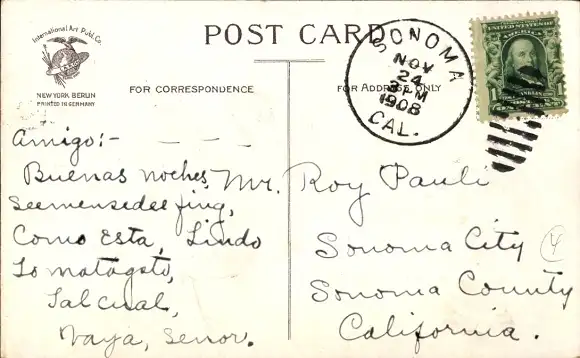 International Art Publ. Co.
NEW YORK BERLIN
PRINTED IN GERMANY
POST CARD
FOR CORRESPONDENCE
FOR ADDRESS ONLY
SONOMA
NOV
24
PM
1908
CAL.
UNITED STATES OF
AMERICA
1
Amigo:-
Buenas noches,
Como Esta, Lindo
Tal cual,
Vaya, Senor.
Mr. Roy Pauli
Sonoma City
Sonoma County
California.
4